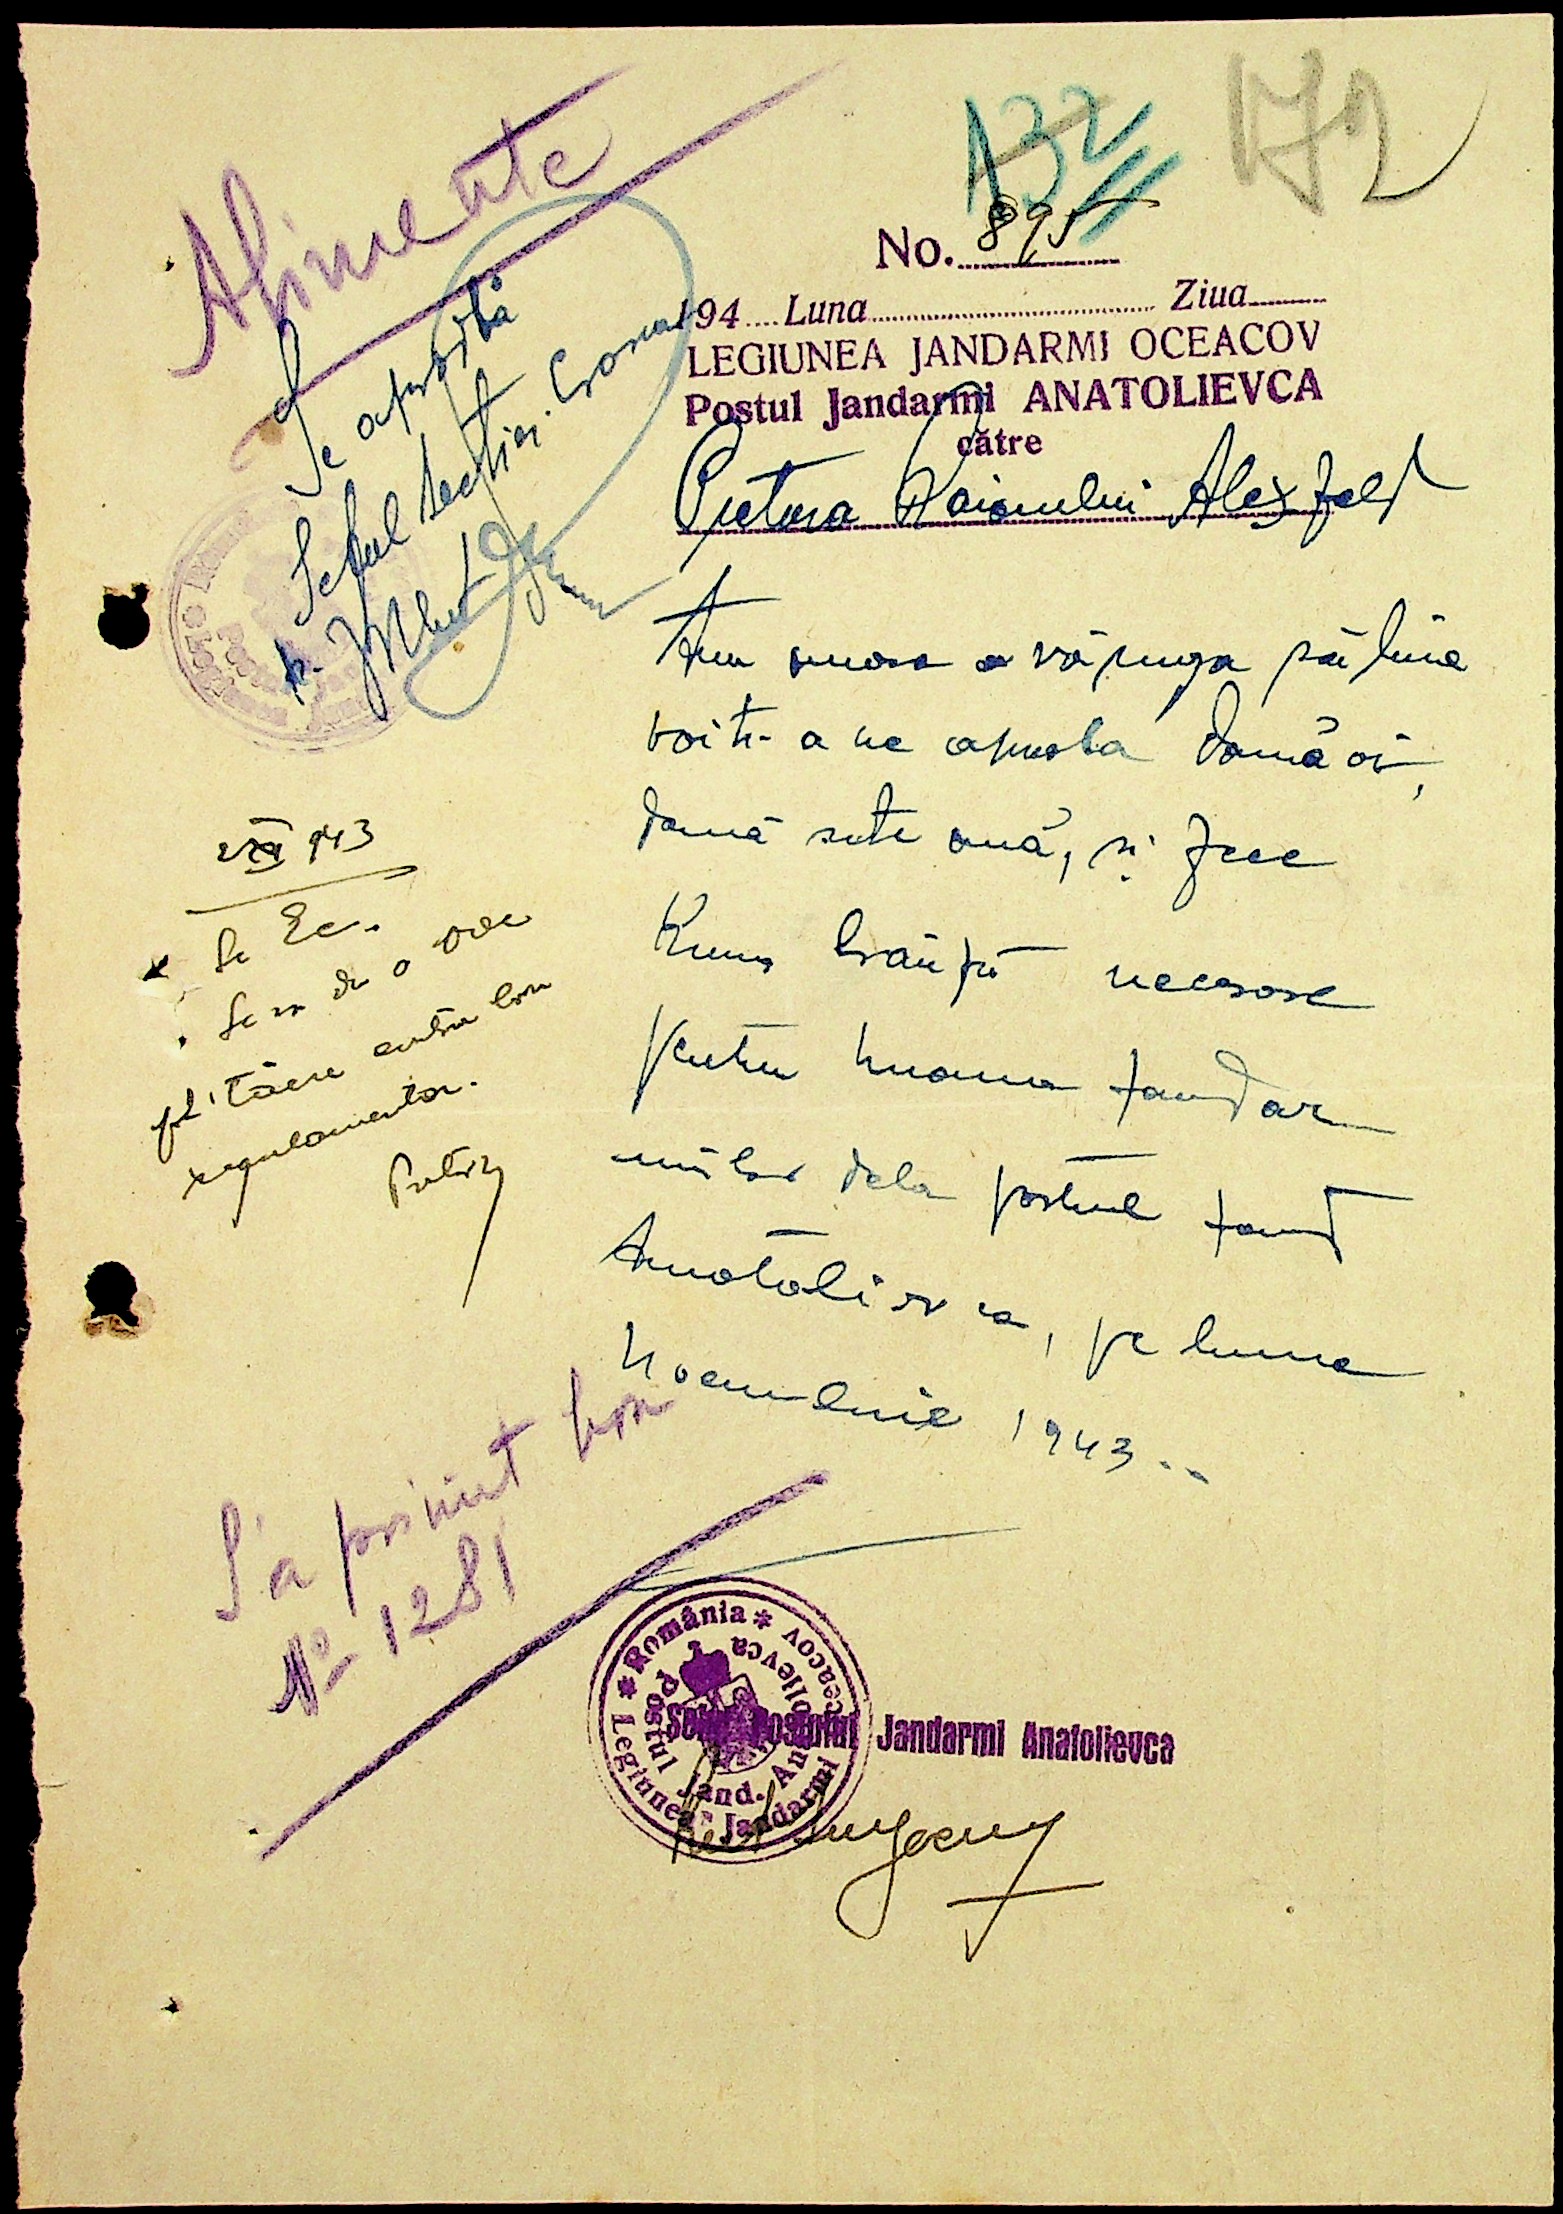 172
132
Alimente
No. 895
194 Luna Ziua
LEGIUNEA JANDARMI OCEACOV
Postul Jandarmi ANATOLIEVCA
către
Pretura Raionului Alexfeld
Se aprobă
Șeful secției
Am onoare a vă ruga să bine
voiti a ne aproba două oi,
două sute ouă, și zece
Kgrm brânză necesare
pentru hrana jandar
milor dela postul jand
Anatolievca, pe luna
Noembrie 1943..
943
Se va da o oae
pt. tăere contra bon
regulamentar.
S'a primit bon
No 1281
România
Legiunea Jandarmi Oceacov
Postul Jand. Anatolievca
Șeful Postului Jandarmi Anatolievca